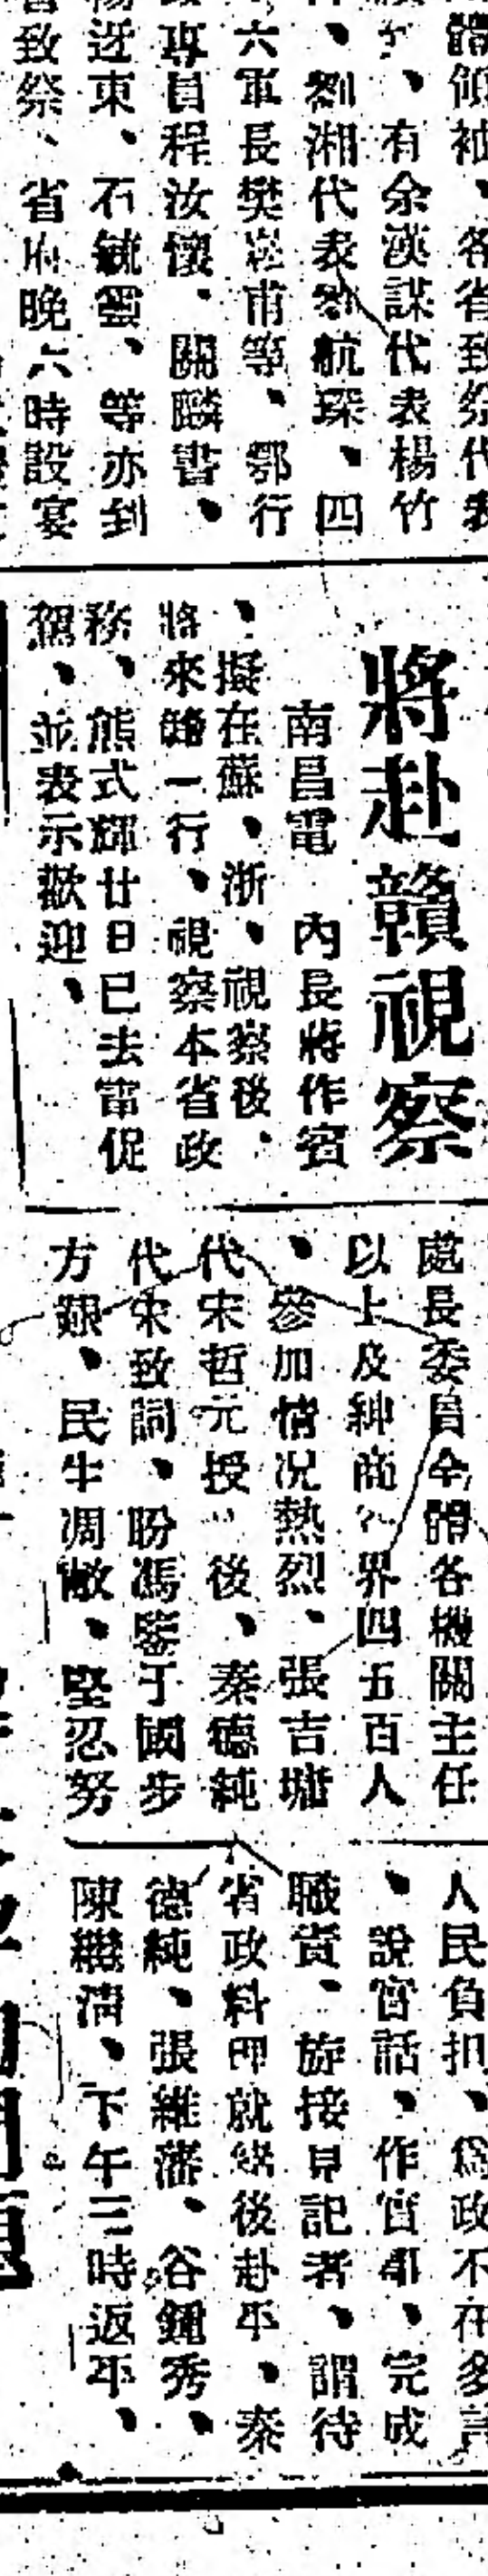 體領袖、各省致祭代表
、有余漢謀代表楊竹
、劉湘代表劉航琛、四
六軍長樊崧甫等、鄂行
專員程汝懷、關麟書、
楊廷東、石毓靈、等亦到
致祭、省府晚六時設宴
將赴贛視察
南昌電　內長蔣作賓
、擬在蘇、浙、視察後、
將來贛一行、視察本省政
務、熊式輝廿日已去電促
駕、並表示歡迎、
處長委員全體各機關主任
以上及紳商各界四五百人
、參加情况熱烈、張吉墉
代宋哲元授印後、秦德純
代宋致詞、盼馮鑒于國步
方艱、民生凋敝、堅忍努
人民負担、爲政不在多言
、說官話、作官、完成
職責、旋接見記者、謂待
省政料理就緒後赴平、秦
德純、張維藩、谷鍾秀、
陳繼淸、下午三時返平、